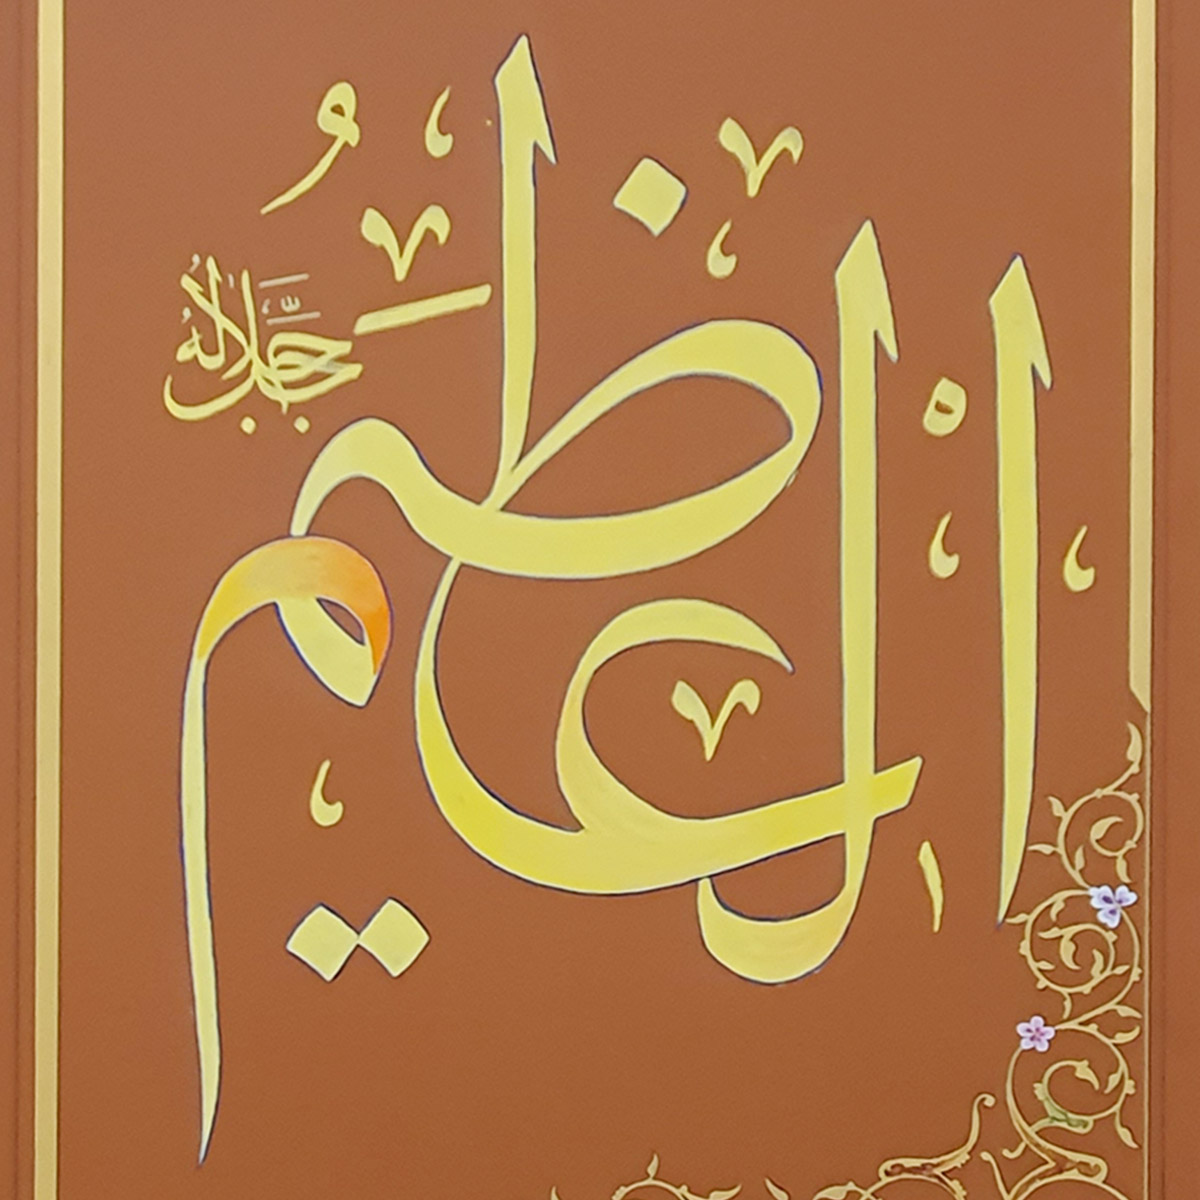 العظيمُ
جَلَّ جلاله